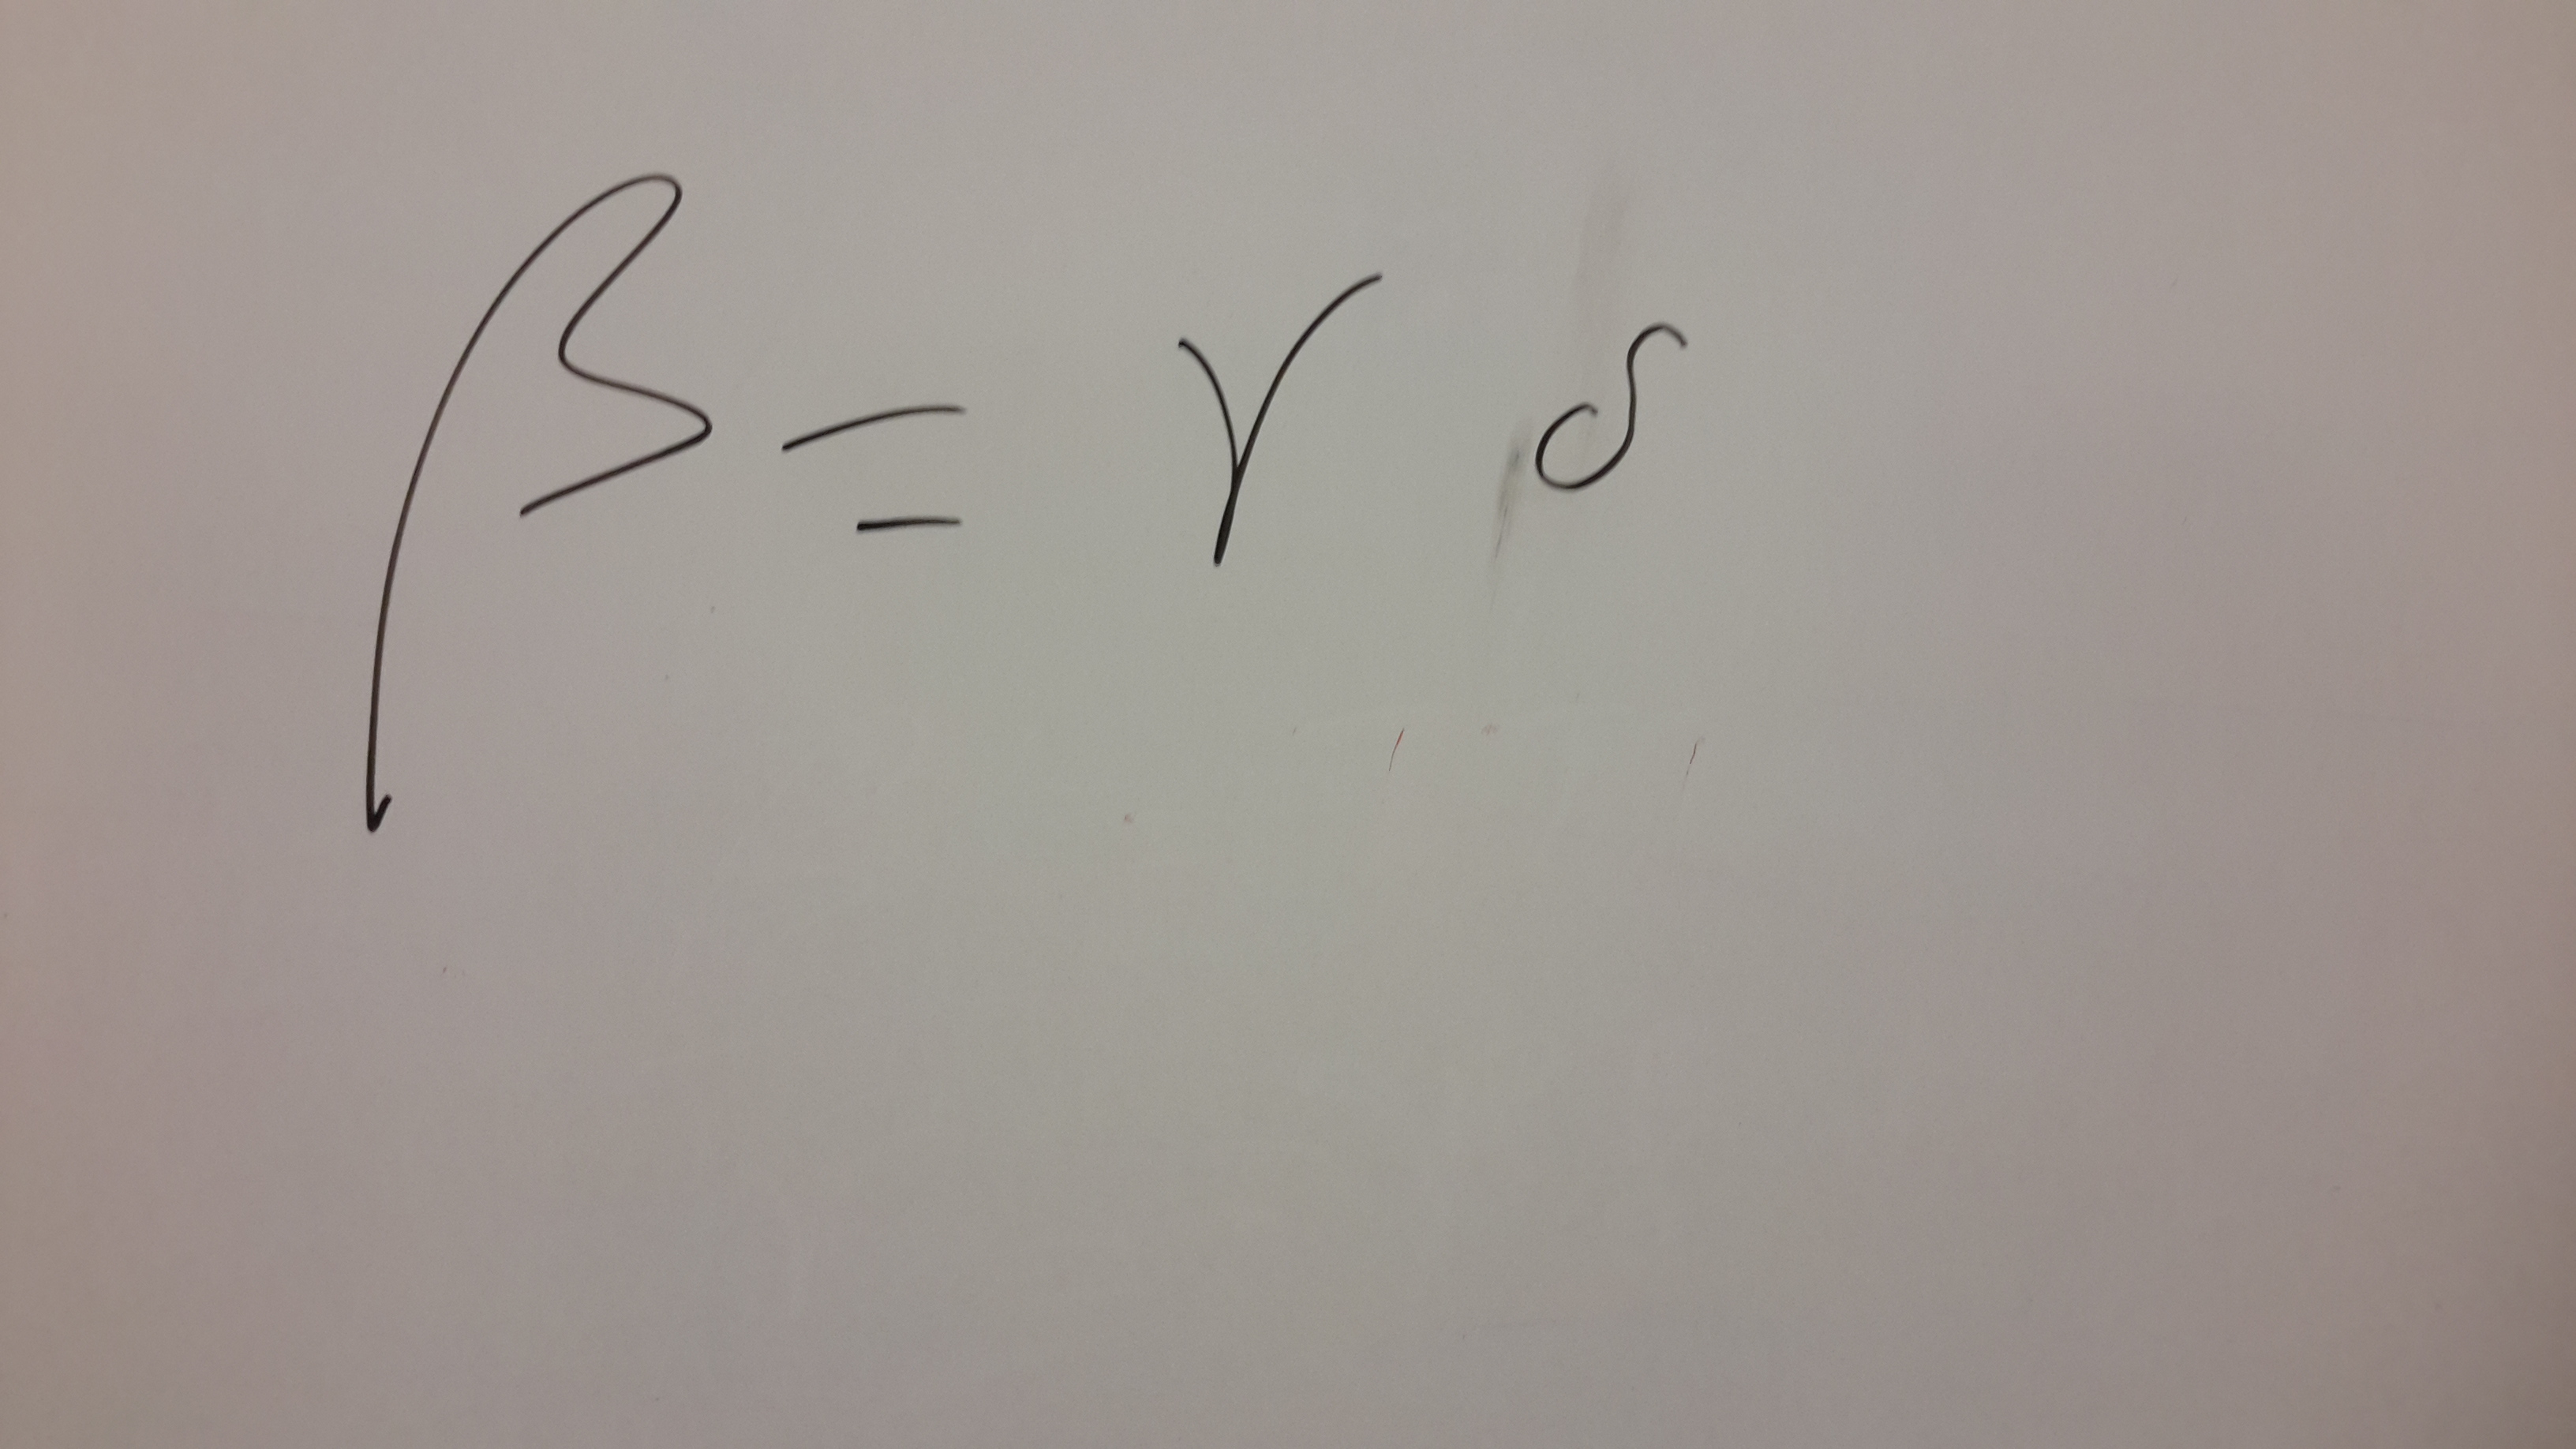 β = γ δ